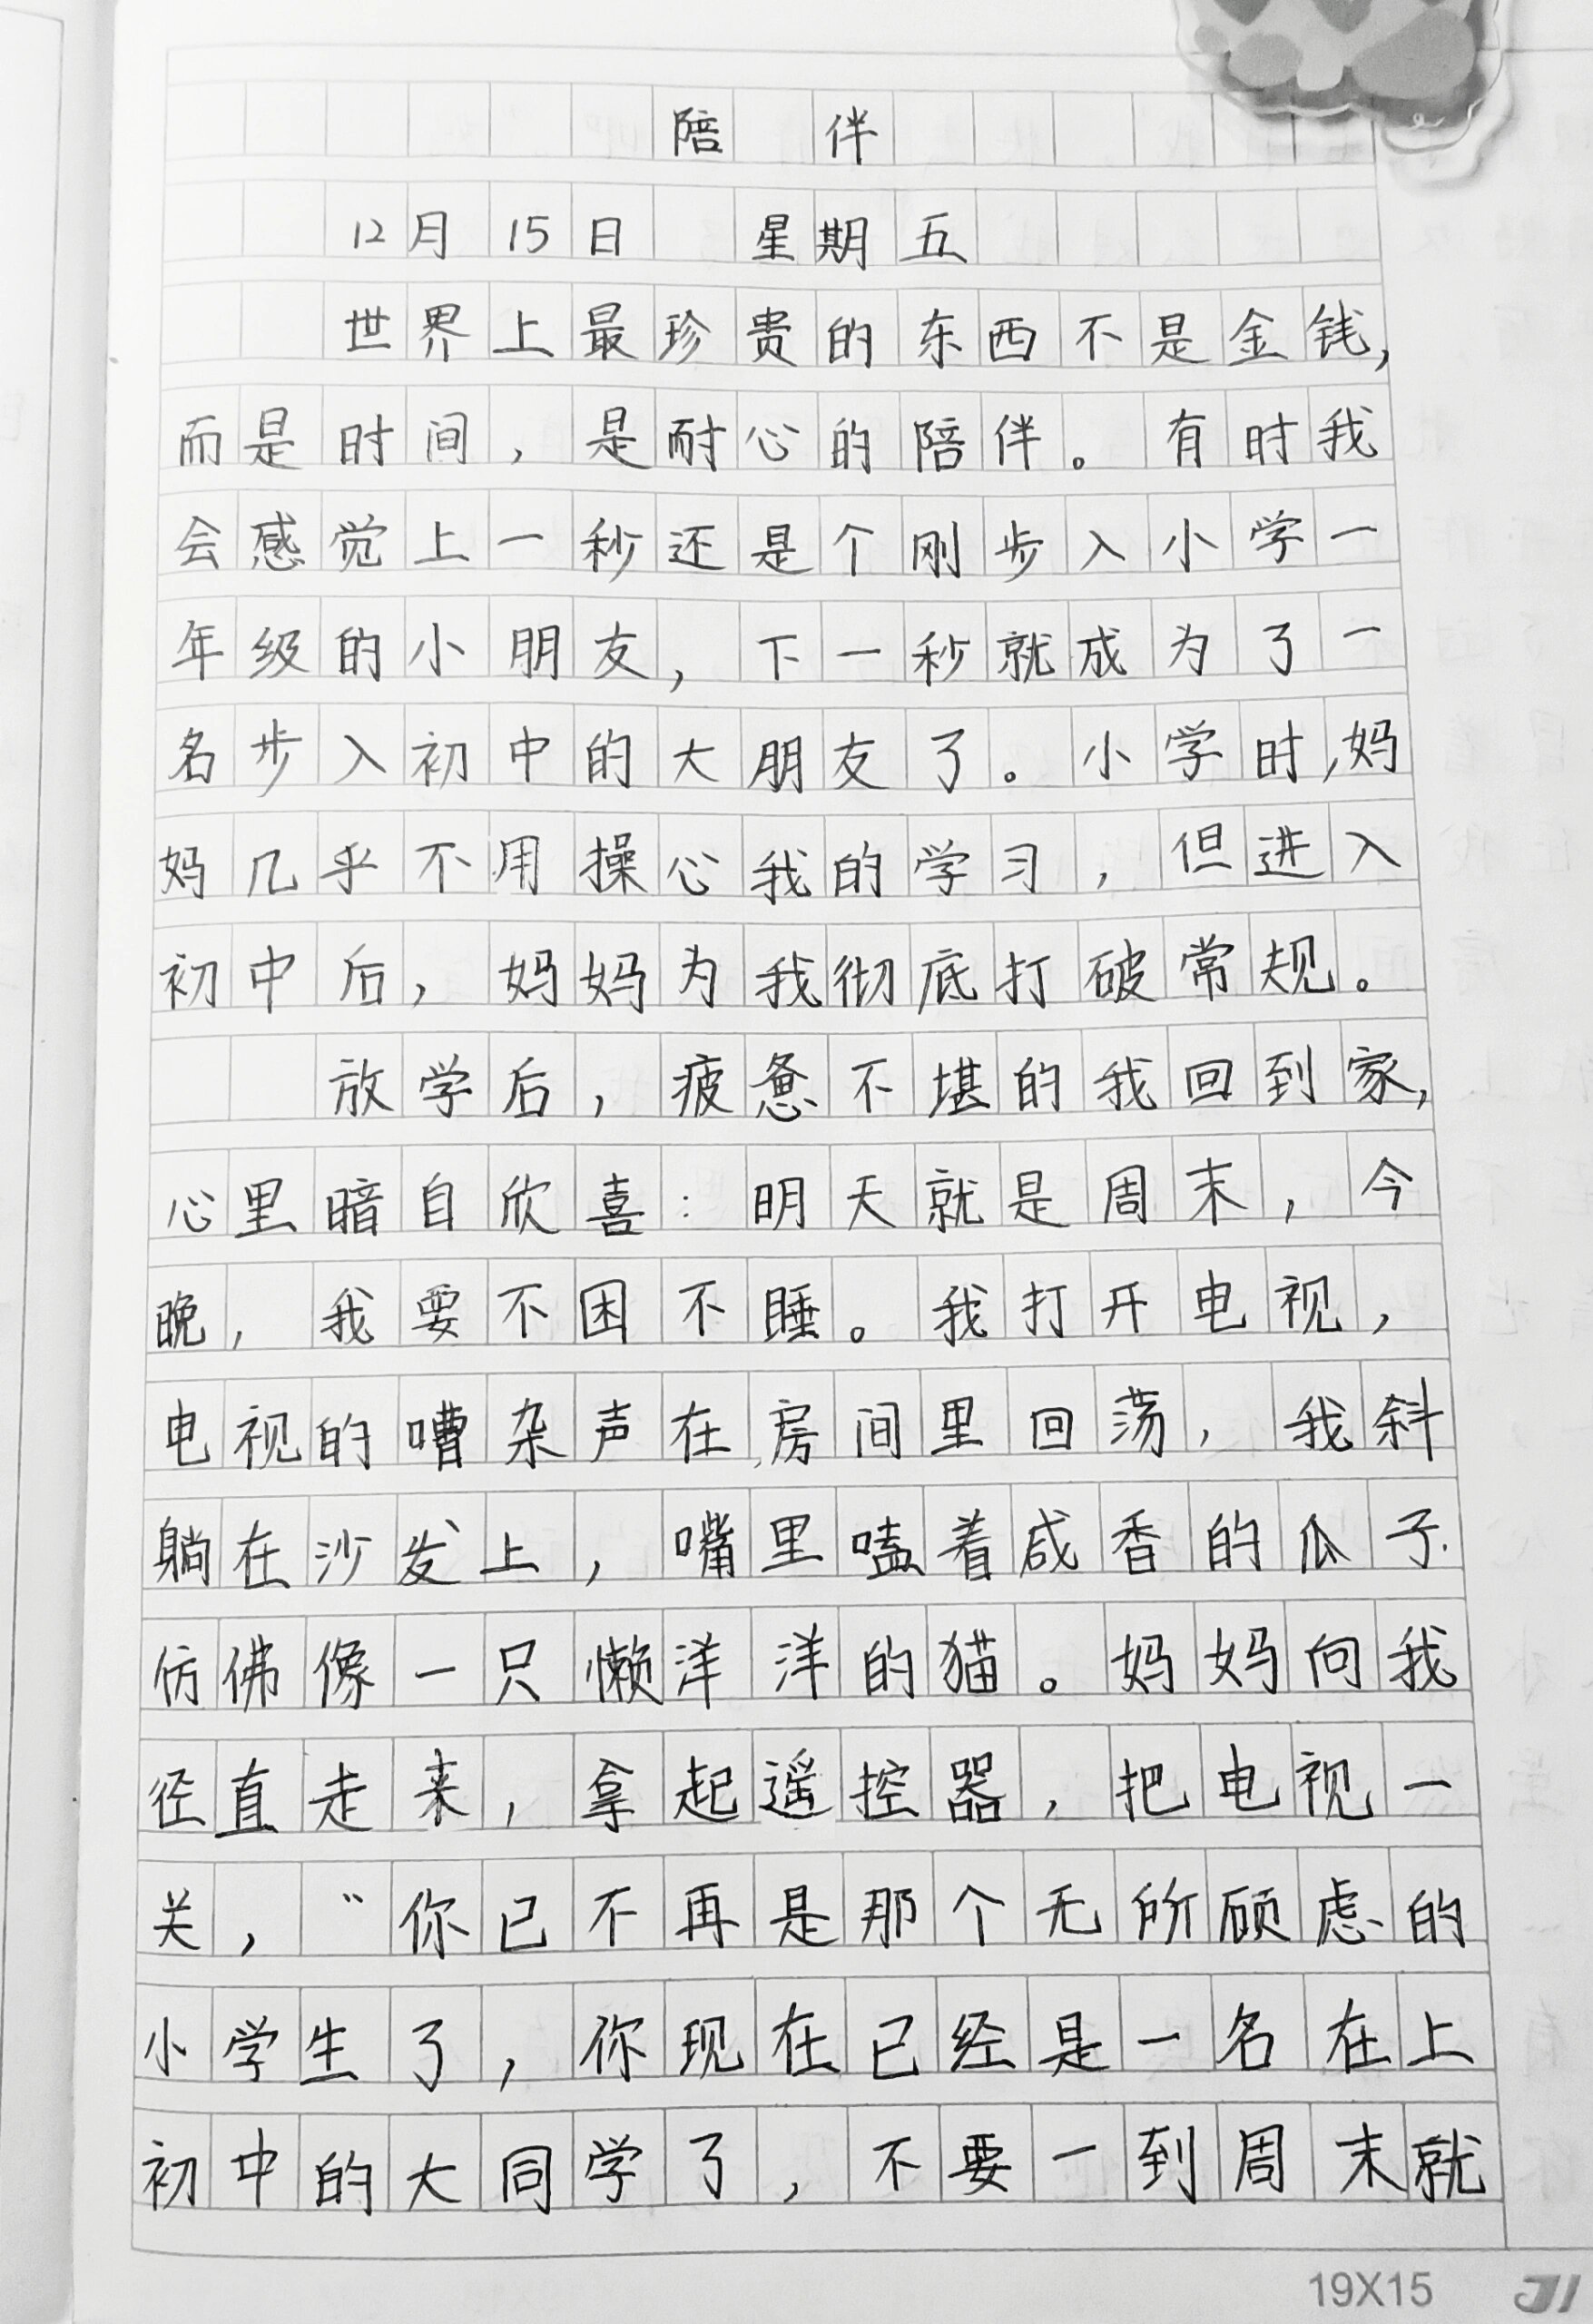 陪伴
12月15日 星期五
世界上最珍贵的东西不是金钱,
而是时间，是耐心的陪伴。有时我
会感觉上一秒还是个刚步入小学一
年级的小朋友，下一秒就成为了一
名步入初中的大朋友了。小学时，妈
妈几乎不用操心我的学习，但进入
初中后，妈妈为我彻底打破常规。
放学后，疲惫不堪的我回到家，
心里暗自欣喜：明天就是周末，今
晚，我要不困不睡。我打开电视，
电视的嘈杂声在房间里回荡，我斜
躺在沙发上，嘴里嗑着咸香的瓜子.
仿佛像一只懒洋洋的猫。妈妈向我
径直走来，拿起遥控器，把电视一
关，“你已不再是那个无所顾虑的
小学生了，你现在已经是一名在上
初中的大同学了，不要一到周末就
19X15